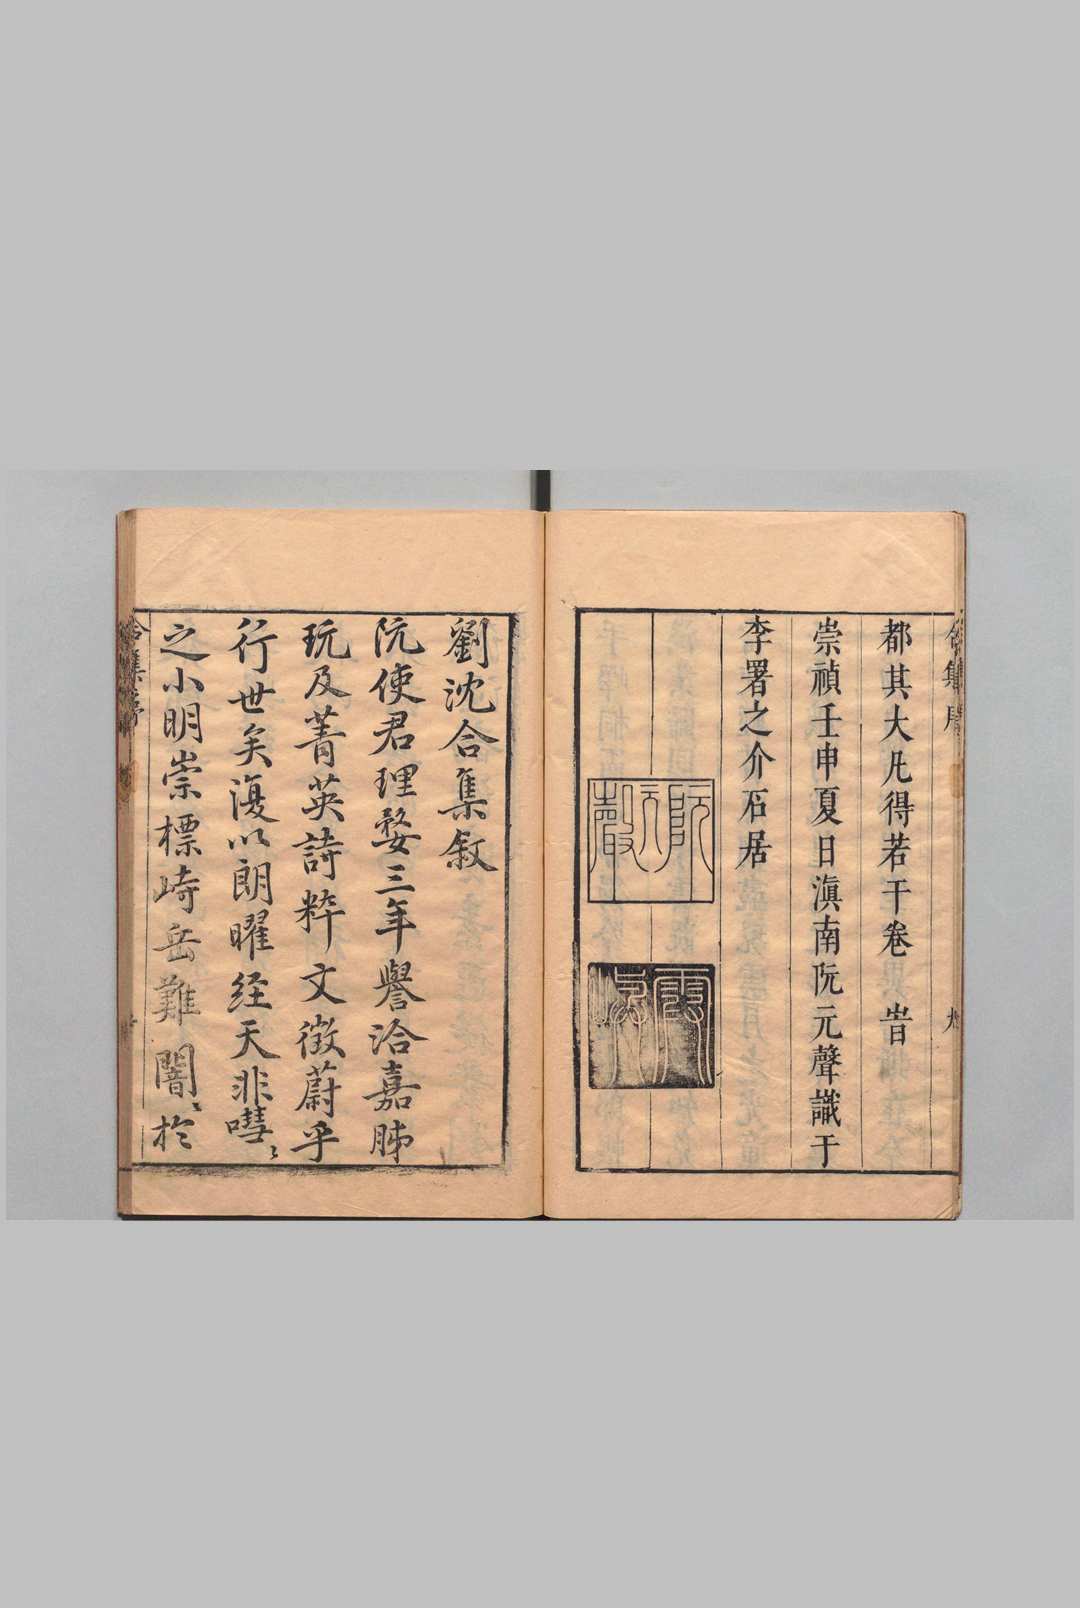 都其大凡得若干卷 旹
崇禎壬申夏日滇南阮元聲識于
李署之介石居
阮元聲
霞嶼
劉沈合集敘
阮使君理婺三年譽洽嘉肺
玩及菁英詩粹文徵蔚乎
行世矣復以朗曜經天非嘒〻
之小明崇標崎岳難闇〻於